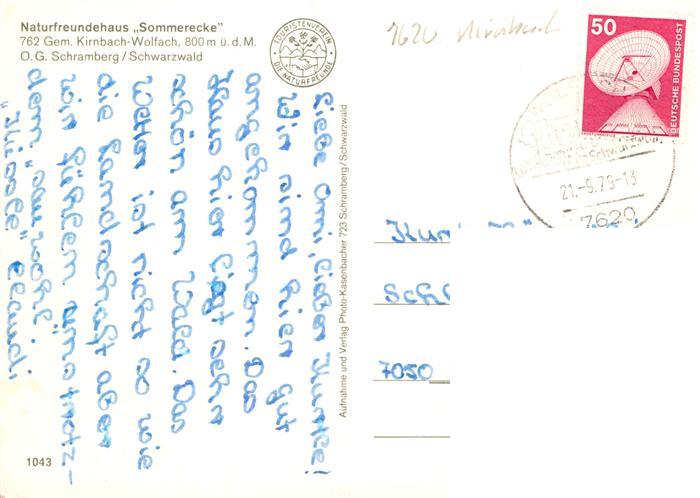 Naturfreundehaus „Sommerecke"
762 Gem. Kirnbach-Wolfach, 800 m ü. d. M.
O. G. Schramberg / Schwarzwald
TOURISTENVEREIN
DIE NATURFREUNDE
7620
50
DEUTSCHE BUNDESPOST
21.-9.79-13
7620
Liebe Omi, lieber
Wir sind hier gut
angekommen. Das
Haus hier liegt sehr
schön am Wald. Das
Wetter ist nicht so wie
die Landschaft aber
wir fühlen uns trotz-
dem "sau" wohl.
Aufnahme und Verlag Photo-Kasenbacher 723 Schramberg/Schwarzwald
7050
1043